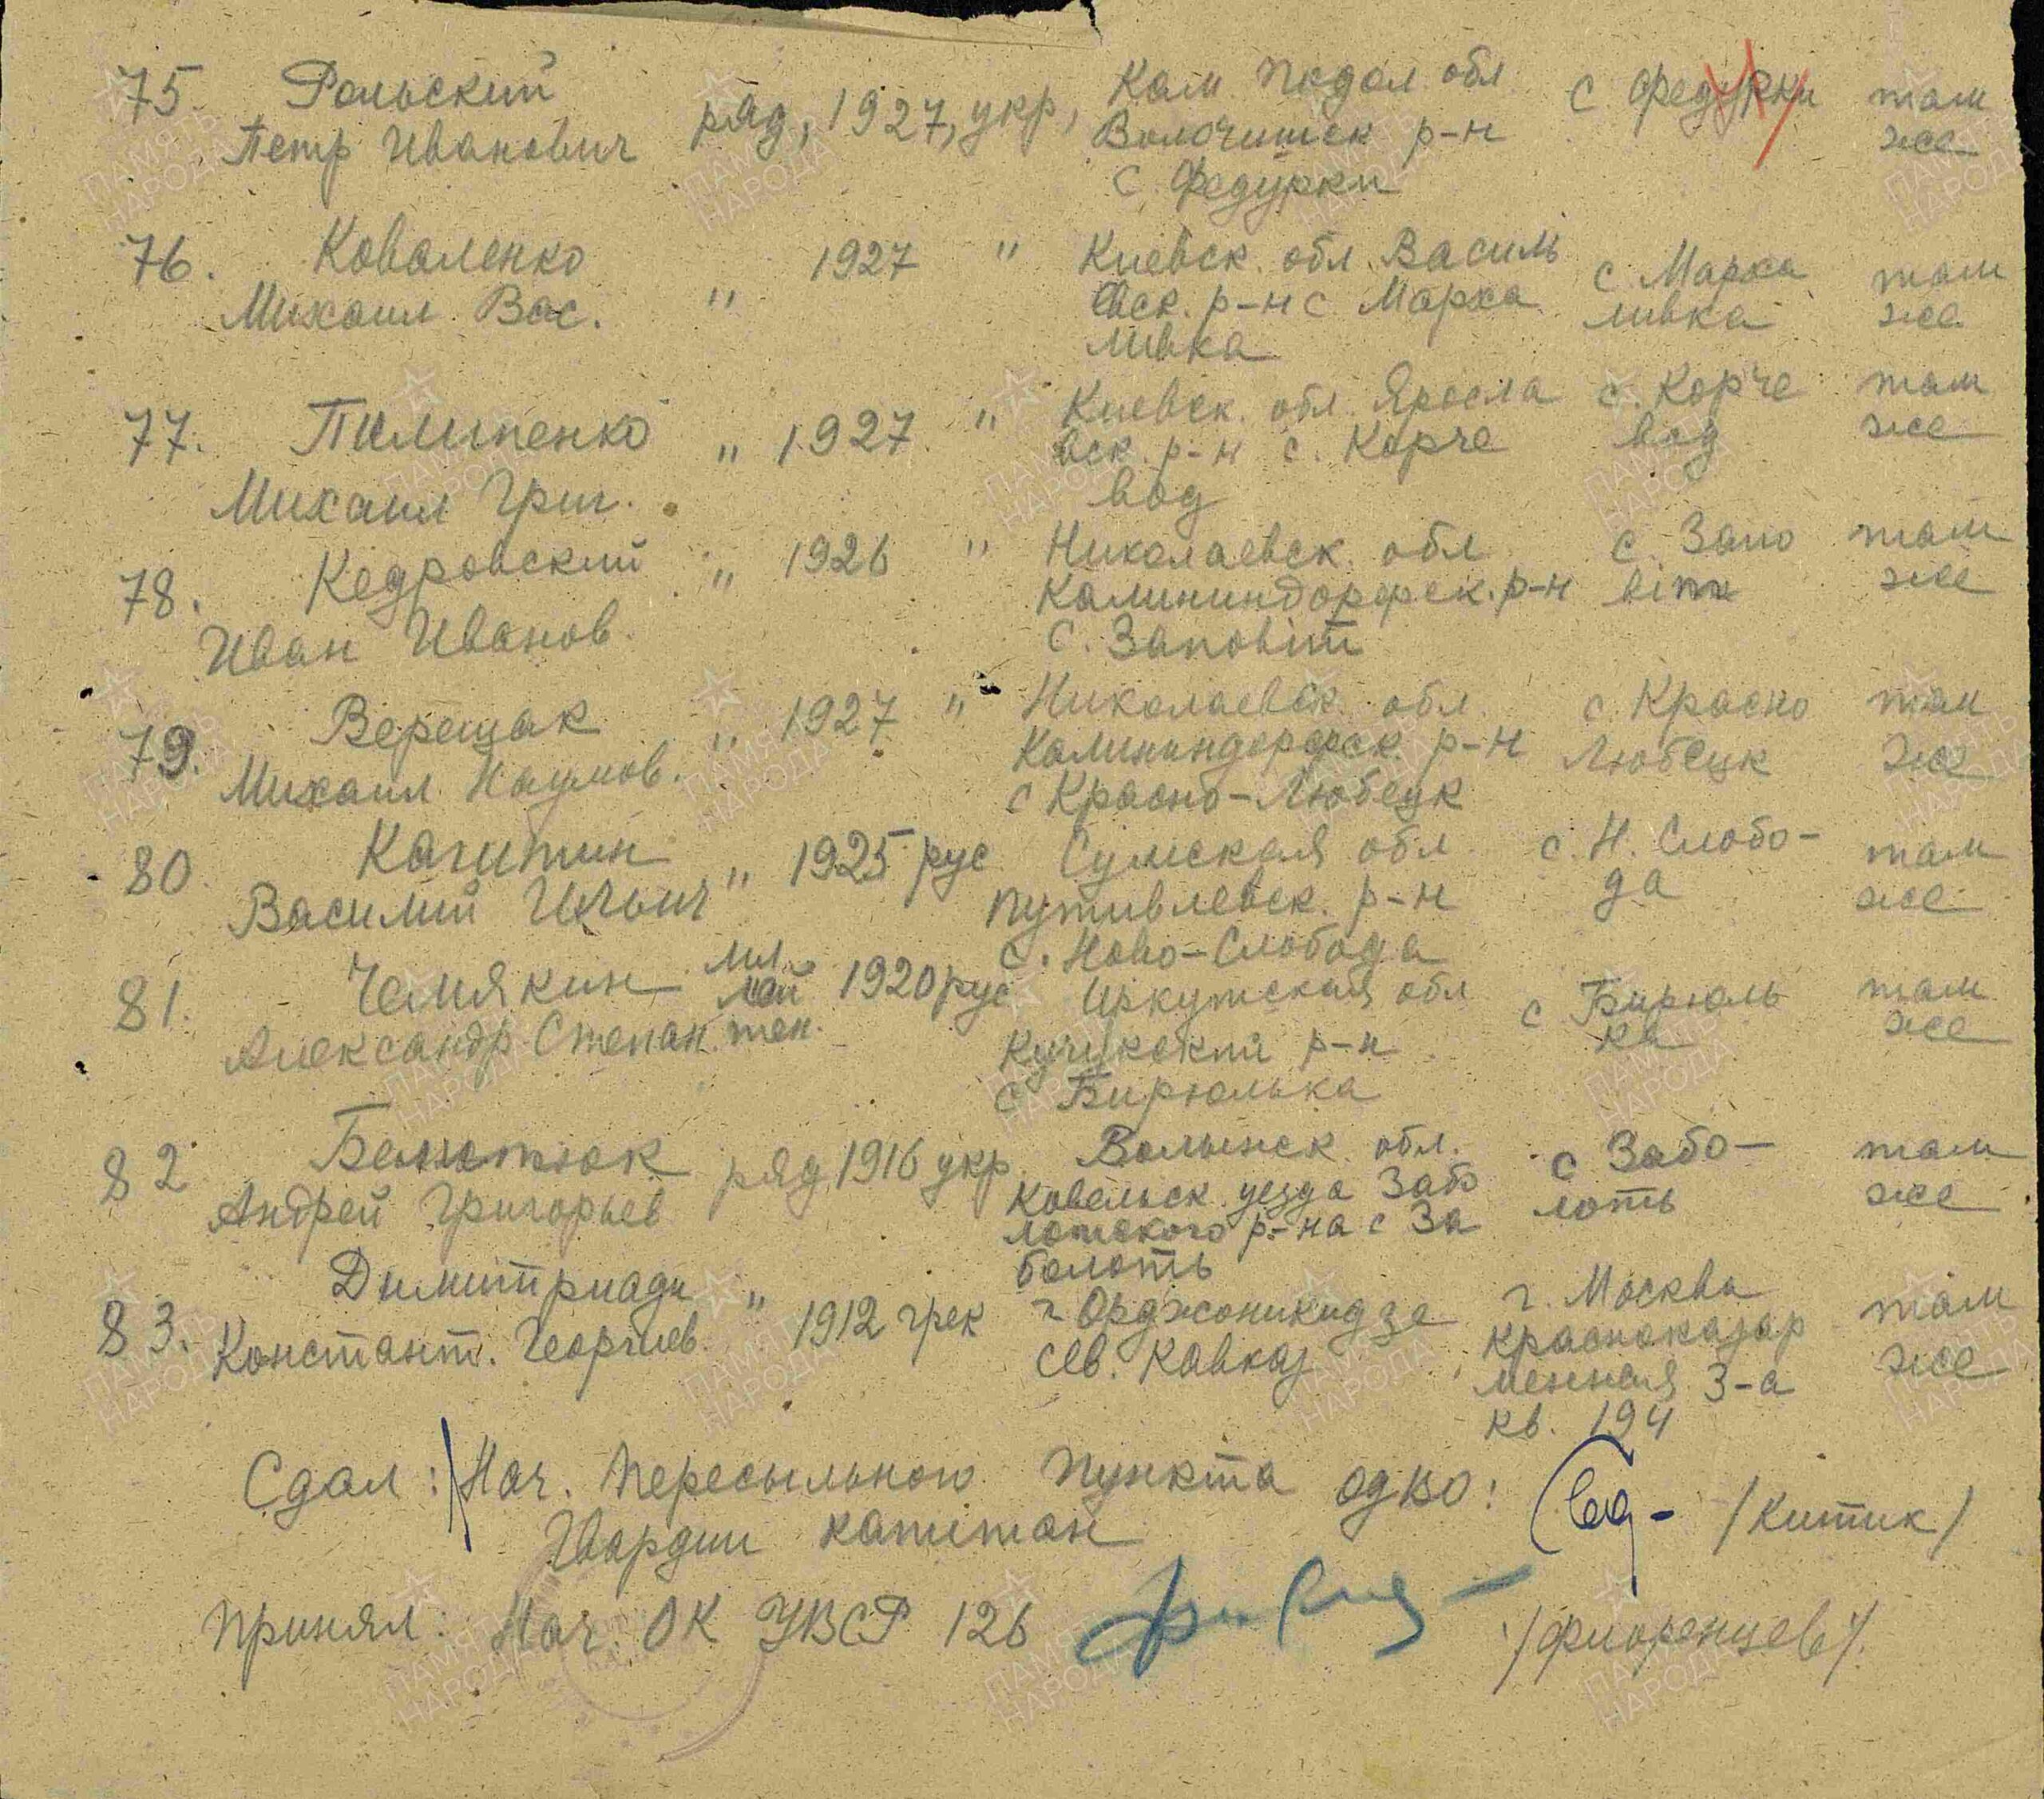 75. Рольский ряд, 1927, укр, Кам Подол обл с Федурки там
Петр Иванович Волочиск р-н же
с. Федурки
76. Коваленко 1927 " Киевск. обл. Василь с Марха там
Михаил Вас. " евск. р-н с Марха ливка же
ливка
77. Пилипенко " 1927 " Киевск. обл. Яросла с. Корче там
вск. р-н с. Корче вод же
Михаил Григ. вод
78. Кедровский " 1926 " Николаевск. обл с. Запо там
Калининдорфск. р-н віт же
Иван Иванов. с. Заповіт
79. Верещак " 1927 " Николаевск. обл с Красно там
Михаил Наумов. Калининдорфск. р-н Любецк же
с Красно-Любецк
80. " 1925 рус Сумская обл с. Н. Слобо- там
Василий Ильич Путивлевск. р-н да же
с. Ново-Слобода
81. Чемякин мл. 1920 рус Иркутская обл с Бирюль там
Александр Степан. тен. р-н ка же
с Бирюлька
82 ряд 1916 укр. Волынск. обл. с Забо- там
Андрей Григорьев Ковельск. уезда Забо лоть же
лотского р-на с За
болоть
83. Димитриади " 1912 грек г. Орджоникидзе г. Москва там
Констант. Георгиев. Сев. Кавказ Красноказар же
менная 3-а
кв. 194
Сдал: Нач. Пересыльного пункта ОдВО: /Китик/
Гвардии капитан
Принял: Нач. ОК УВСР 126 /Фиоренцев/.
ПАМЯТЬ НАРОДА